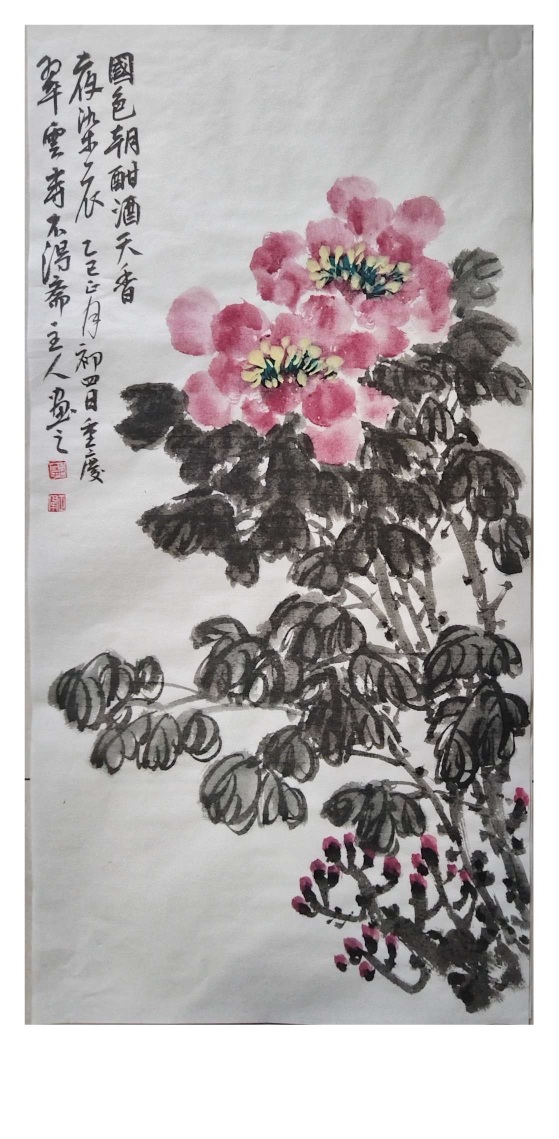 國色朝酣酒天香
夜染衣 乙巳正月初四日重慶
翠雲 不得齋主人畫之